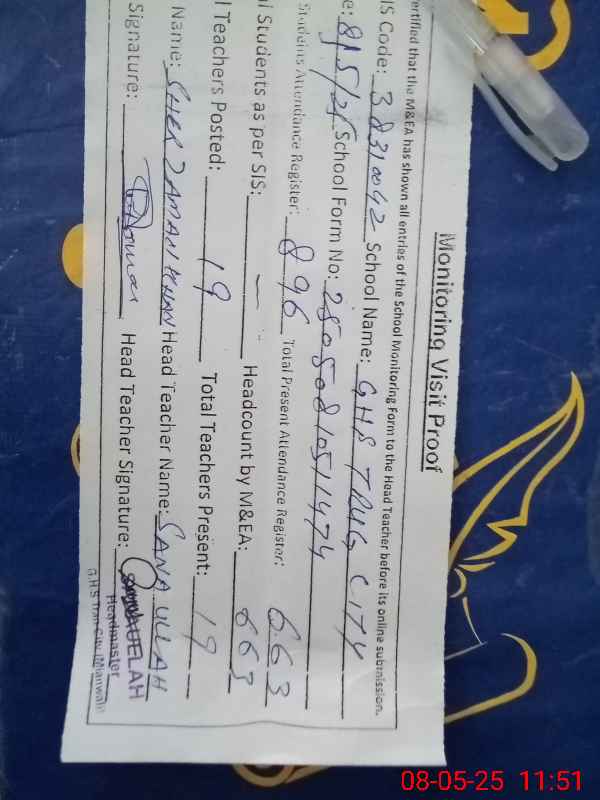 Monitoring Visit Proof
ertified that the M&EA has shown all entries of the School Monitoring Form to the Head Teacher before its online submission.
IS Code: 38310042 School Name: GHS TRUG CITY
e: 8/5/25 School Form No: 25050810511474
Students Attendance Register: 896 Total Present Attendance Register: 663
al Students as per SIS: – Headcount by M&EA: 663
l Teachers Posted: 19 Total Teachers Present: 19
Name: SHER ZAMAN KHAN Head Teacher Name: SANA ULLAH
Signature: Head Teacher Signature:
Headmaster
G.H.S Trag City (Mianwali)
08-05-25 11:51